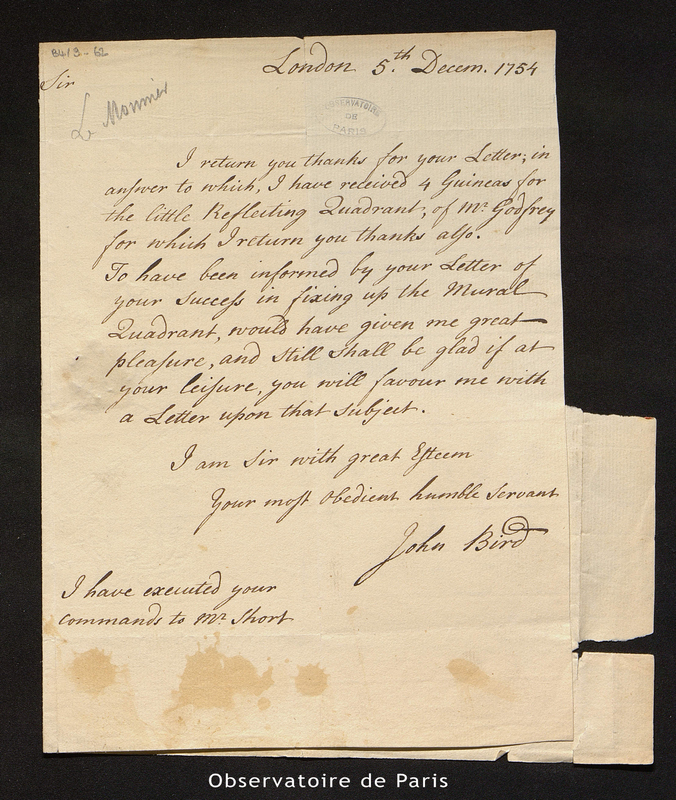 B4/3-62
London 5.th Decem. 1754
Sir
Le Monnier
OBSERVATOIRE
DE
PARIS
I return you thanks for your Letter; in
answer to which, I have received 4 Guineas for
the little Reflecting Quadrant, of Mr. Godfrey
for which I return you thanks also.
To have been informed by your Letter of
your success in fixing up the Mural
Quadrant, would have given me great
pleasure, and still shall be glad if at
your leisure, you will favour me with
a Letter upon that subject.
I am Sir with great Esteem
Your most Obedient humble Servant
John Bird
I have executed your
commands to Mr. Short
Observatoire de Paris